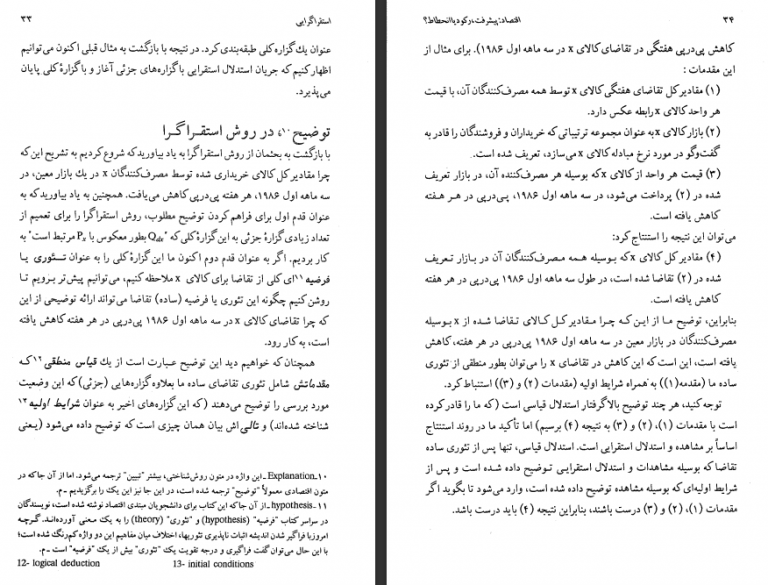 استقراگرایی ۳۳
عنوان یك گزاره کلی طبقه‌بندی کرد. در نتیجه با بازگشت به مثال قبلی اکنون می‌توانیم
اظهار کنیم که جریان استدلال استقرایی با گزاره‌های جزئی آغاز و با گزارهٔ کلی پایان
می‌پذیرد.
توضیح۱۰، در روش استقـراگـرا
با بازگشت به بحثمان از روش استقراگرا به یاد بیاورید که شروع کردیم به تشریح این که
چرا مقادیر کل کالای خریداری شده توسط مصرف‌کنندگان x در یك بازار معین، در
سه ماهه اول ۱۹۸۶، هر هفته پی‌درپی کاهش می‌یافت. همچنین به یاد بیاورید که به
عنوان قدم اول برای فراهم کردن توضیح مطلوب، روش استقراگرا را برای تعمیم از
تعداد زیادی گزارهٔ جزئی به این گزارهٔ کلی که "Qdx بطور معکوس با Px مرتبط است" به
کار بردیم. اگر به عنوان قدم دوم اکنون ما این گزارهٔ کلی را به عنوان تئوری یا
فرضیه۱۱ای کلی از تقاضا برای کالای x ملاحظه کنیم، می‌توانیم پیش‌تر برویم تا
روشن کنیم چگونه این تئوری یا فرضیه (ساده) تقاضا می‌تواند ارائه توضیحی از این
که چرا تقاضای کالای x در سه ماهه اول ۱۹۸۶ پی‌درپی در هر هفته کاهش یافته
است، به کار رود.
همچنان که خواهیم دید این توضیح عبارت است از یك قیاس منطقی۱۲ که
مقدماتش شامل تئوری تقاضای ساده ما بعلاوه گزاره‌هایی (جزئی) که این وضعیت
مورد بررسی را توضیح می‌دهند (که این گزاره‌های اخیر به عنوان شرایط اولیه۱۳
شناخته شده‌اند) و تالی‌اش بیان همان چیزی است که توضیح داده می‌شود (یعنی
۱۰ـExplanation ـ این واژه در متون روش‌شناختی، بیشتر "تبیین" ترجمه می‌شود. اما از آن جا که در
متون اقتصادی معمولاً "توضیح" ترجمه شده است، در این جا نیز این یك را برگزیدیم ـ م.
۱۱ـhypothesis ـ از آن جا که این کتاب برای دانشجویان مبتدی اقتصاد نوشته شده است، نویسندگان
در سراسر کتاب "فرضیه" (hypothesis) و "تئوری" (theory) را به یك معنی آورده‌اند. گرچه
امروز با فراگیر شدن اندیشه اثبات ناپذیری تئوریها، اختلاف میان مفاهیم این دو واژه کم‌رنگ شده است؛
با این حال می‌توان گفت فراگیری و درجه تقویت یك "تئوری" بیش از یك "فرضیه" است ـ م.
12- logical deduction 13- initial conditions
۳۴ اقتصاد: پیشرفت، رکود یا انحطاط؟
کاهش پی‌درپی هفتگی در تقاضای کالای x در سه ماهه اول ۱۹۸۶). برای مثال از
این مقدمات :
(۱) مقادیر کل تقاضای هفتگی کالای x توسط همه مصرف‌کنندگان آن، با قیمت
هر واحد کالای x رابطه عکس دارد.
(۲) بازار کالای x به عنوان مجموعه ترتیباتی که خریداران و فروشندگان را قادر به
گفت‌وگو در مورد نرخ مبادله کالای x می‌سازد، تعریف شده است.
(۳) قیمت هر واحد از کالای x که بوسیله هر مصرف‌کننده آن، در بازار تعریف
شده در (۲) پرداخت می‌شود، در سه ماهه اول ۱۹۸۶، پی‌درپی در هر هفته
کاهش یافته است.
می‌توان این نتیجه را استنتاج کرد:
(۴) مقادیر کل کالای x که بوسیله همه مصرف‌کنندگان آن در بازار تعریف
شده در (۲) تقاضا شده است، در طول سه ماهه اول ۱۹۸۶ پی‌درپی در هر هفته
کاهش یافته است.
بنابراین، توضیح ما از این که چرا مقادیر کل کالای تقاضا شده از x بوسیله
مصرف‌کنندگان در بازار معین در سه ماهه اول ۱۹۸۶ پی‌درپی در هر هفته، کاهش
یافته است، این است که این کاهش در تقاضای x را می‌توان بطور منطقی از تئوری
ساده ما (مقدمه(۱)) به همراه شرایط اولیه (مقدمات (۲) و (۳)) استنباط کرد.
توجه کنید، هر چند توضیح بالا گرفتار استدلال قیاسی است (که ما را قادر کرده
است با مقدمات (۱)، (۲) و (۳) به نتیجه (۴) برسیم) اما تأکید ما در روند استنتاج
اساساً بر مشاهده و استدلال استقرایی است. استدلال قیاسی، تنها پس از تئوری ساده
تقاضا که بوسیله مشاهدات و استدلال استقرایی توضیح داده شده است و پس از
شرایط اولیه‌ای که بوسیله مشاهده توضیح داده شده است، وارد می‌شود تا بگوید اگر
مقدمات (۱)، (۲) و (۳) درست باشند، بنابراین نتیجه (۴) باید درست باشد.